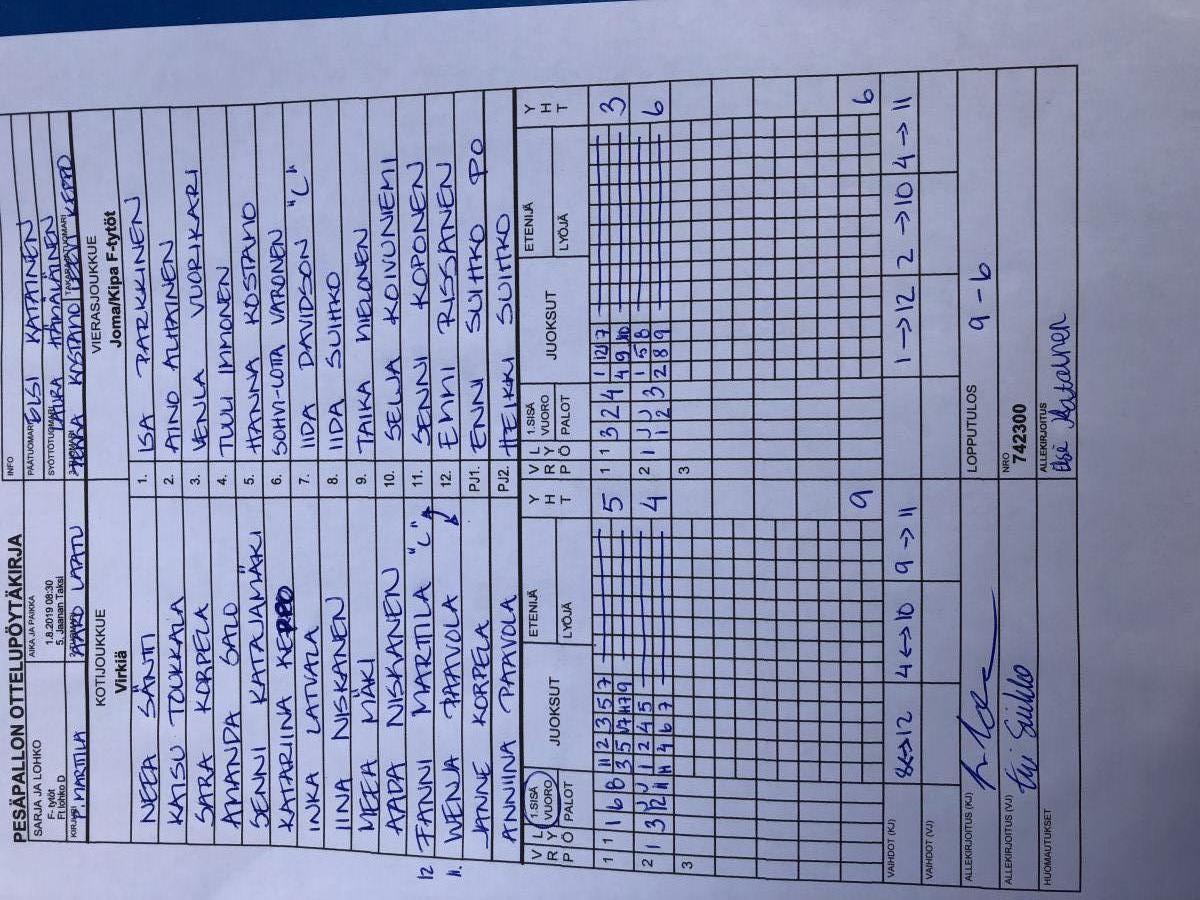 PESÄPALLON OTTELUPÖYTÄKIRJA
SARJA JA LOHKO
F- tytöt
Ft lohko D
AIKA JA PAIKKA
1.8.2019 08:30
5. Jaanan Taksi
INFO
PÄÄTUOMARI ELSI KATAINEN
SYÖTTÖTUOMARI LAURA HÄMÄLÄINEN
KIRJURI P. MARTTILA
KOSTAMO
TAKARAJATUOMARI
KOTIJOUKKUE
Virkiä
VIERASJOUKKUE
Joma/Kipa F-tytöt
NEEA SÄNTTI 1. ISA PARKKINEN
KATSU TOUKKALA 2. AINO ALHAINEN
SARA KORPELA 3. VENLA VUORIKARI
AMANDA SALO 4. TUULI IMMONEN
SENNI KATAJAMÄKI 5. HANNA KOSTAMO
KATARIINA KERPPO 6. SOHVI-LOTTA VARONEN
INKA LATVALA 7. IIDA DAVIDSON "L"
IINA NISKANEN 8. IIDA SUIHKO
MEEA MÄKI 9. TAIKA MELONEN
AADA NISKANEN 10. SELJA KOIVUNIEMI
12 FANNI MARTTILA "L" 11. SENNI KOPONEN
11. WENJA PAAVOLA 12. EMMI RISSANEN
JANNE KORPELA PJ1. ENNI SUIHKO PO
ANNIINA PAAVOLA PJ2. HEIKKI SUIHKO
V R P L Y Ö 1.SISÄ VUORO PALOT JUOKSUT ETENIJÄ LYÖJÄ Y H T V R P L Y Ö 1.SISÄ VUORO PALOT JUOKSUT ETENIJÄ LYÖJÄ Y H T
1 1 1 6 8 11 2 3 5 7 5 1 1 3 2 4 1 12 7 3
3 5 4 9 10
2 1 3 12 11 1 2 4 5 4 2 1 1 2 3 1 5 8 6
11 4 6 7 2 8 9
3 3
9 6
VAIHDOT (KJ) 8<->12 4<->10 9->11 1->12 2->10 4->11
VAIHDOT (VJ)
ALLEKIRJOITUS (KJ) LOPPUTULOS 9-6
ALLEKIRJOITUS (VJ) NRO
742300
HUOMAUTUKSET ALLEKIRJOITUS
Elsi Katainen